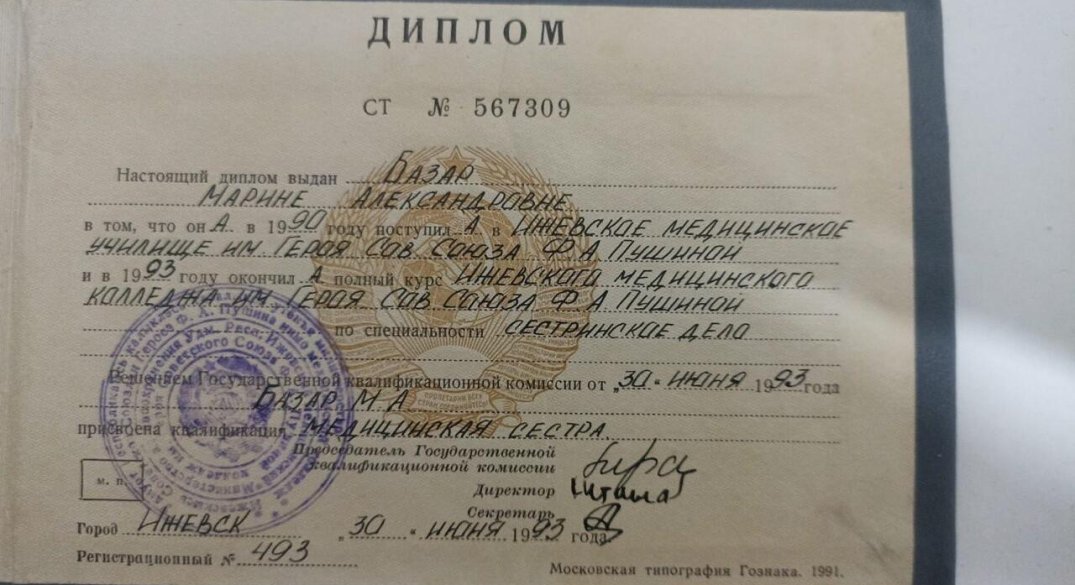 ДИПЛОМ
СТ № 567309
Настоящий диплом выдан БАЗАР
МАРИНЕ АЛЕКСАНДРОВНЕ
в том, что он А в 1990 году поступил А в ИЖЕВСКОЕ МЕДИЦИНСКОЕ
УЧИЛИЩЕ ИМ ГЕРОЯ СОВ СОЮЗА Ф А ПУШИНОЙ
и в 1993 году окончил А полный курс ИЖЕВСКОГО МЕДИЦИНСКОГО
КОЛЛЕДЖА ИМ ГЕРОЯ СОВ СОЮЗА Ф А ПУШИНОЙ
по специальности СЕСТРИНСКОЕ ДЕЛО
Решением Государственной квалификационной комиссии от „30 “ ИЮНЯ 1993 года
БАЗАР М А
присвоена квалификация МЕДИЦИНСКАЯ СЕСТРА
Председатель Государственной
квалификационной комиссии
Директор
Секретарь
м. п.
Город ИЖЕВСК „30 “ ИЮНЯ 1993 года
Регистрационный № 493
Московская типография Гознака. 1991.